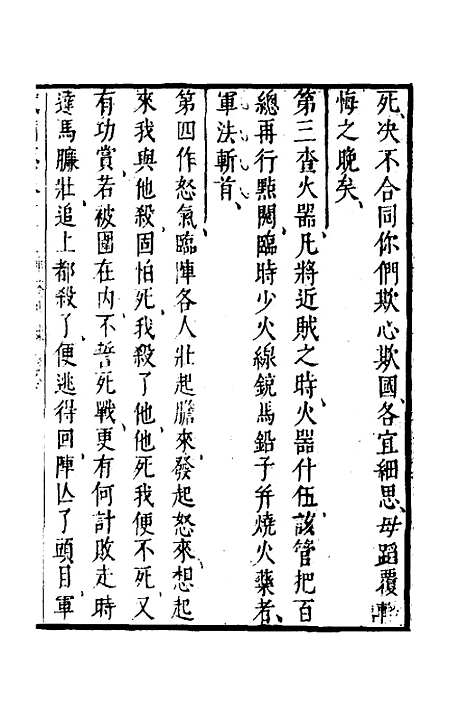 死決不合同你們欺心欺國各宜細思毋蹈覆轍
悔之晚矣
第三查火器凡將近賊之時火器什伍該管把百
總再行點閱臨時少火線銃馬鉛子并燒火藥者
軍法斬首
第四作怒氣臨陣各人壯起膽來發起怒來想起
來我與他殺固怕死我殺了他他死我便不死又
有功賞若被圍在內不誓死戰更有何計敗走時
達馬臕壯追上都殺了便逃得回陣亾了頭目軍